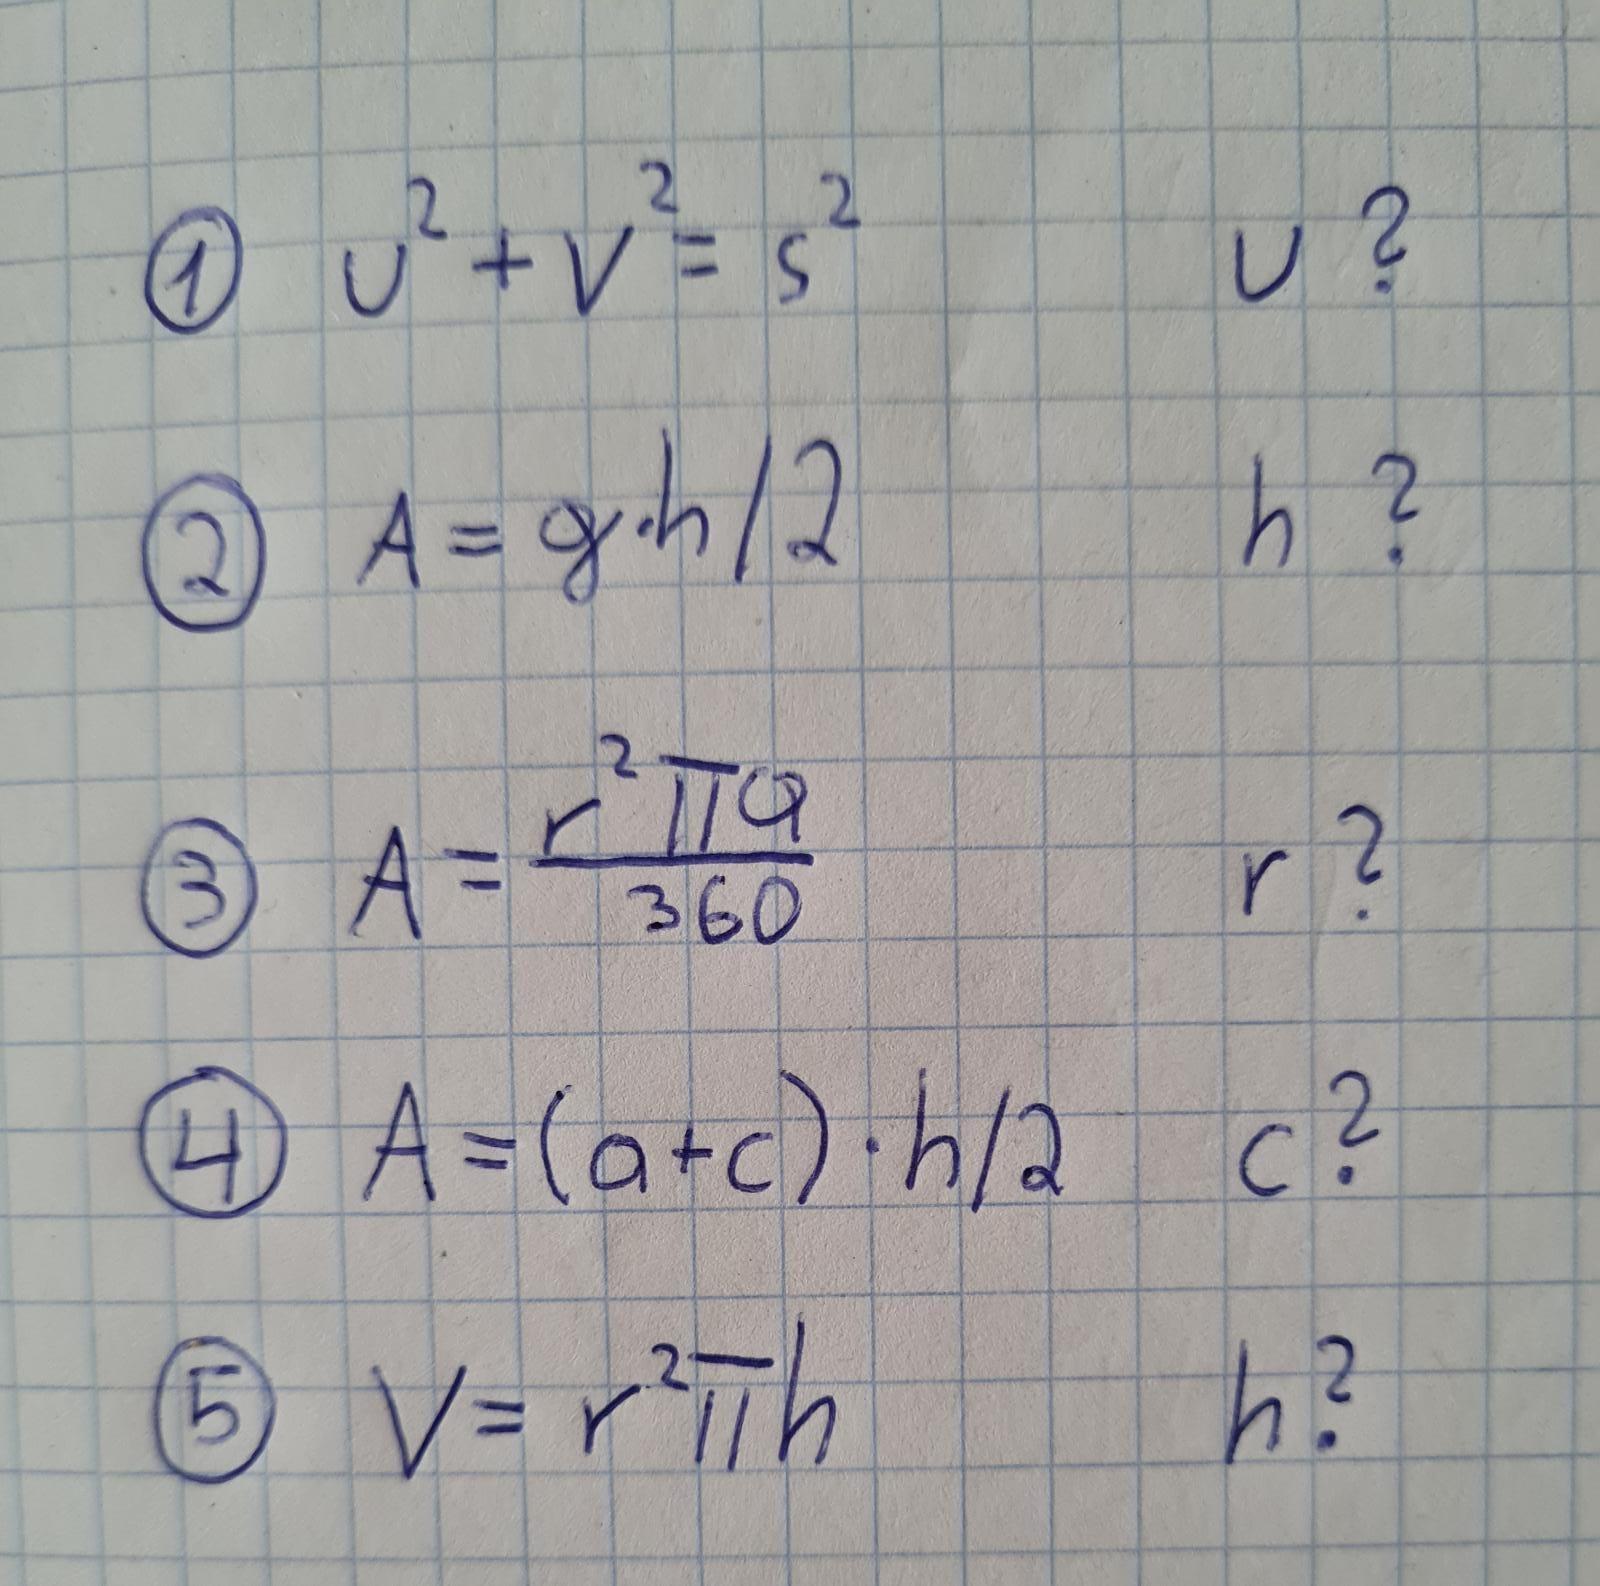 ① u² + v² = s² u ?
② A = g·h/2 h ?
③ A = r²πα/360 r ?
④ A = (a+c)·h/2 c ?
⑤ V = r²πh h ?